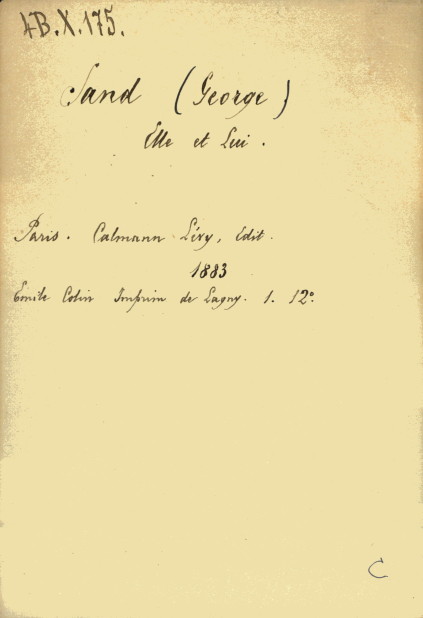 4B.X.175.
Sand (George)
Elle et Lui.
Paris. Calmann Lévy, Edit.
1883
Emile Colin Imprim de Lagny. 1. 12º.
C